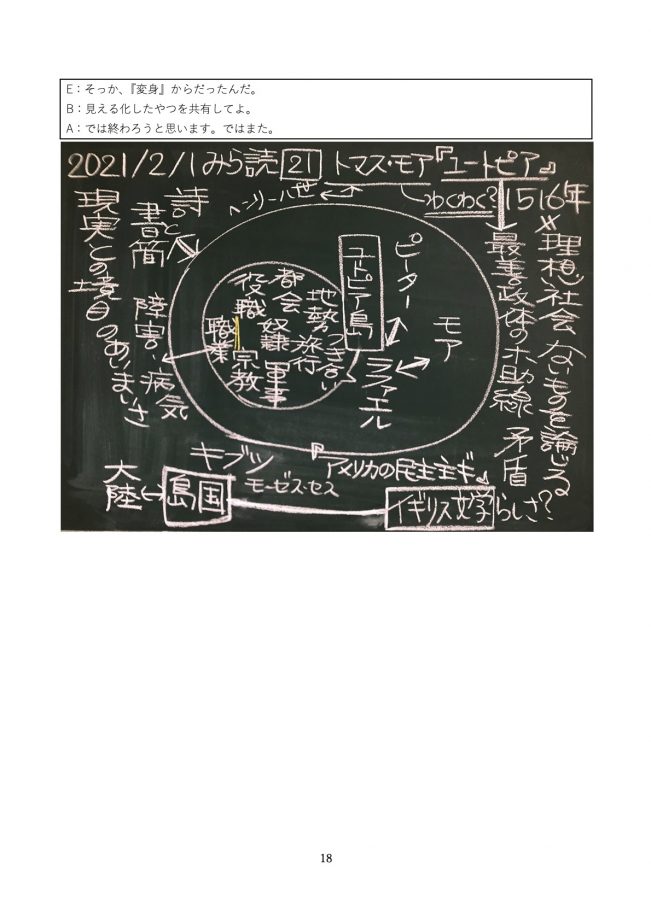 E：そっか、『変身』からだったんだ。
B：見える化したやつを共有してよ。
A：では終わろうと思います。ではまた。
2021/2/1みら読21 トマス・モア『ユートピア』
ヘンリー八世
わくわく？
1516年
理想社会 ないものを論じる
最善政体の補助線 矛盾
モア
ピーター
ラファエル
ユートピア島
つき合い
地勢 旅行
都会 奴隷 軍事
役職 宗教
職業
詩と
書簡 障害、病気
現実との境目のあいまいさ
キブツ
『アメリカの民主主ギ』
モーゼス・セス
大陸↔島国
イギリス文学らしさ？
18